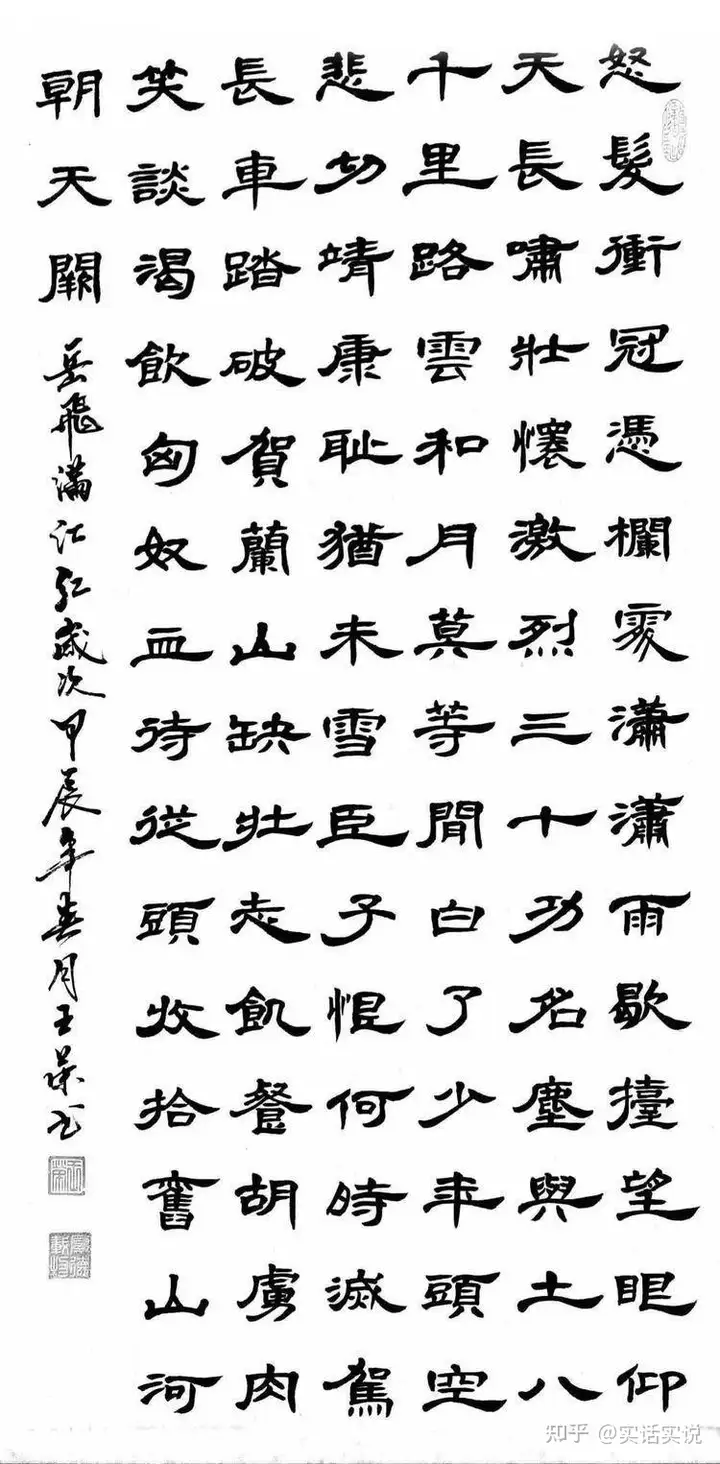 怒髮衝冠憑欄處瀟瀟雨歇擡望眼仰
天長嘯壯懷激烈三十功名塵與土八
千里路雲和月莫等閒白了少年頭空
悲切靖康耻猶未雪臣子恨何時滅駕
長車踏破賀蘭山缺壯志飢餐胡虜肉
笑談渴飲匈奴血待從頭收拾舊山河
朝天闕
岳飛滿江紅歲次甲辰年春月王书
知乎 @实话实说